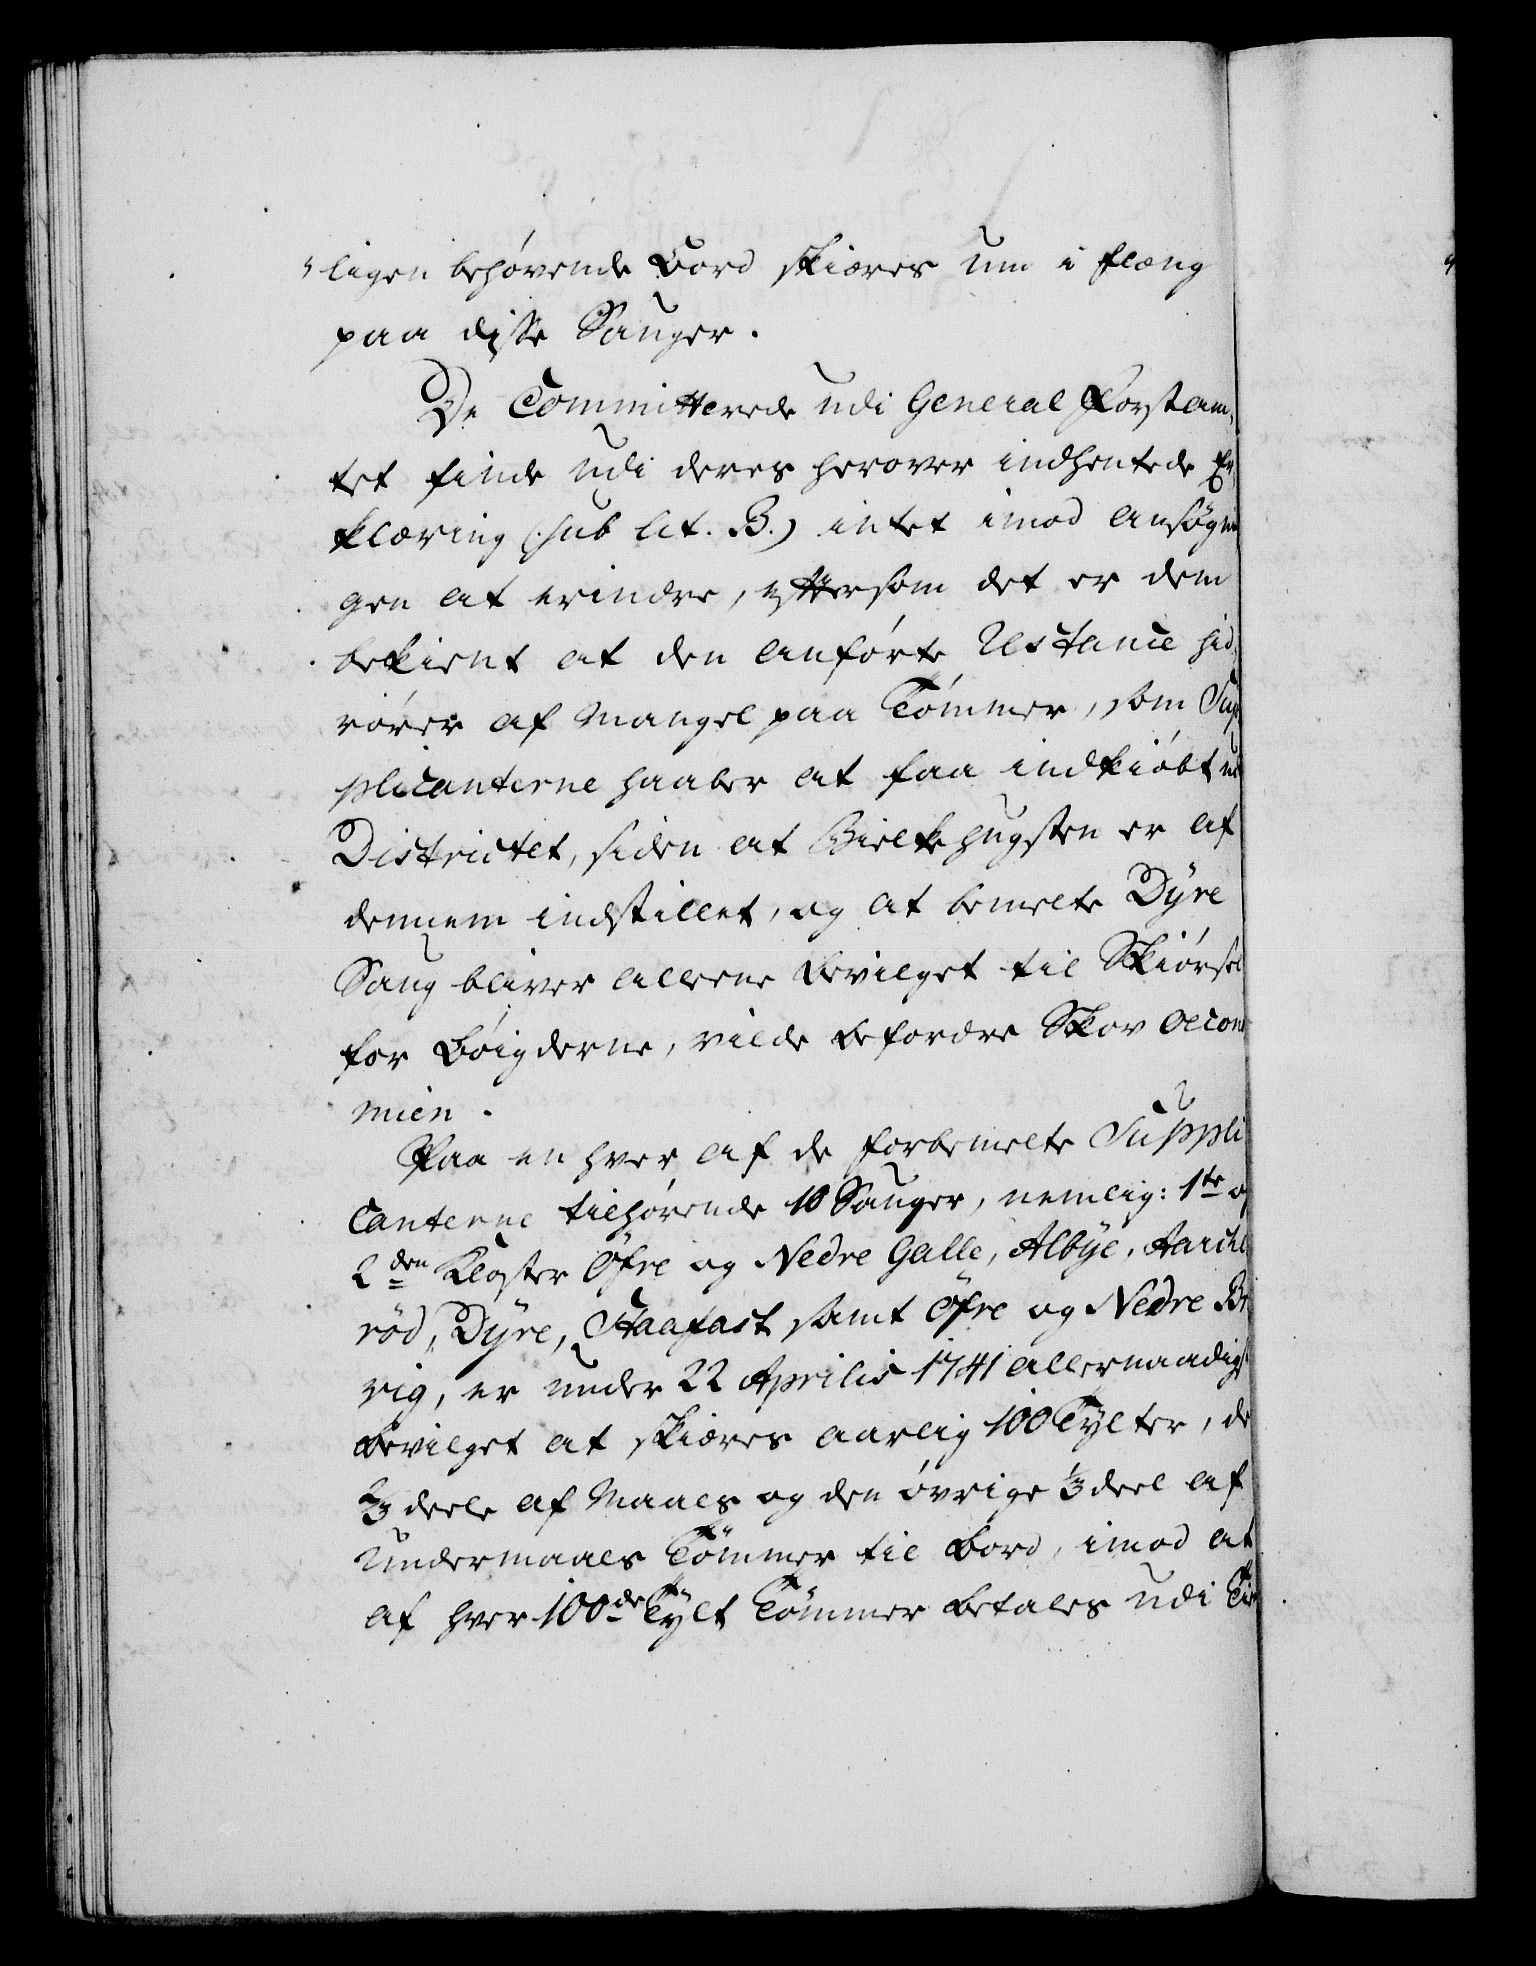 ligen behøvende Bord skiæres um i flæng
paa disse Sauger.
De Committerede udi General Forstam,
tet finde udi deres herover indhentede Er,
klæring (sub Lit. B.) intet imod ansøgnin
gen at erindre, efftersom det er dem
bekient at den anførte Restance hid,
rører af Mangel paa Tømmer, som Sup
plicanterne haaber at faa indkiøbt ud
Districtet, siden at Bielkehugsten er af
dennem indstillet, og at bemelte Dyre
Saug bliver alleene bevilget til Skiørsel
for Bøigderne, vilde befordre Skov Oecono
mien.
Paa en hver af de forbemelte Suppli
canterne tilhørende 10 Sauger, nemlig: 1te og
2den Kloster Öfre og Nedre Galle, Albye, Aarhl
röd, Dyre, Staafast samt Öfre og Nedre Br
vig, er under 22 Aprilis 1741 allernaadigst
bevilget at skiæres aarlig 100 Tylter, de
2/3 deele af Maals og den øvrige 1/3 deel af
Undermaals Tømmer til Bord, imod at
af hver 100de Tylt Tømmer betales udi Tie